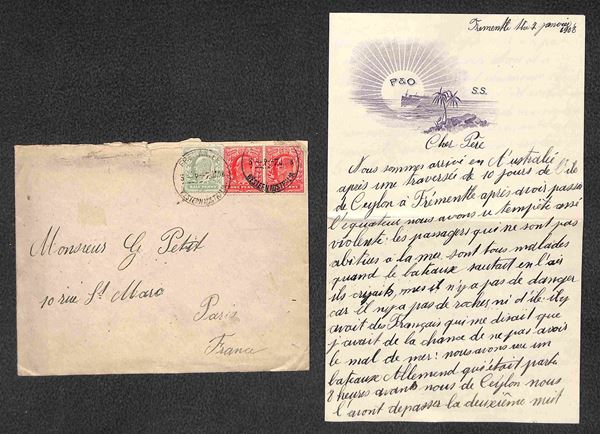 Monsieur G Petit
10 rue St Marc
Paris
France
WESTERN AUSTRALIA
Frementle
1908
P&O
S.S.
Cher Père
Nous sommes arrivé en Australie
après une traversée de 10 jours de l'île
de Ceylon à Frémentle après avoir passer
l'équateur nous avons u tempête ansé
violente: les passagers qui ne sont pas
abitués a la mer, sont tous malades
quand le bateaux sautait en l'air
ils criaits, mes il n'y a pas de danger
car il n'y a pas de roches ni d'île: il y
avait des Français qui me disait que
j'avait de la chance de ne pas avoir
le mal de mer: nous avons vue un
bateaux Allemend qui était partit
2 heures avants nous de Ceylon nous
l'avont depasser la deuxième nuit